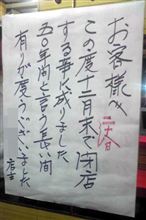 お客様へ
この度十二月末で閉店
する事に成りました
五〇年間と言う長い間
有りが度うございました
店主